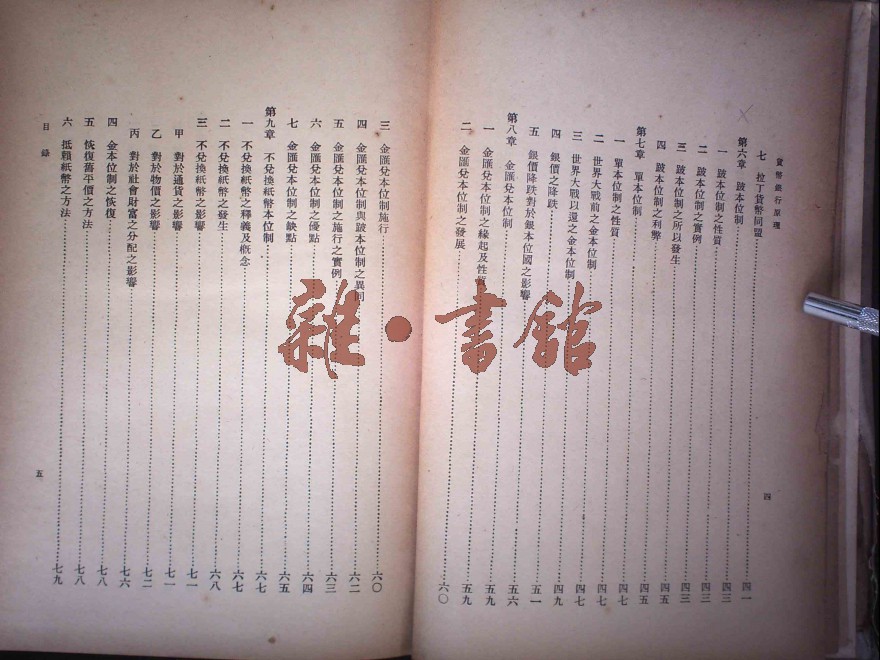 貨幣銀行原理
七 拉丁貨幣同盟……四一
第六章 跛本位制……四三
一 跛本位制之性質……四三
二 跛本位制之實例……四三
三 跛本位制之所以發生……四五
四 跛本位制之利弊……四五
第七章 單本位制……四五
一 單本位制之性質……四七
二 世界大戰前之金本位制……四七
三 世界大戰以還之金本位制……四七
四 銀價之降跌……四九
五 銀價降跌對於銀本位國之影響……五一
第八章 金匯兌本位制……五六
一 金匯兌本位制之緣起及性質……五九
二 金匯兌本位制之發展……六〇
四
三 金匯兌本位制施行……六〇
四 金匯兌本位制與跛本位制之異同……六二
五 金匯兌本位制之施行之實例……六三
六 金匯兌本位制之優點……六四
七 金匯兌本位制之缺點……六五
第九章 不兌換紙幣本位制……六七
一 不兌換紙幣之釋義及概念……六七
二 不兌換紙幣之發生……六八
三 不兌換紙幣之影響……七一
甲 對於通貨之影響……七一
乙 對於物價之影響……七二
丙 對於社會財富之分配之影響……七六
四 金本位制之恢復……七八
五 恢復舊平價之方法……七八
六 抵賴紙幣之方法……七九
目錄
五
雜·書館